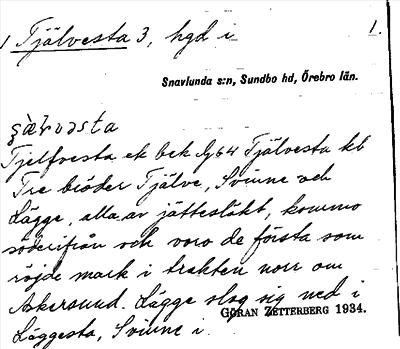 1 Tjälvesta 3, hgd i 1.
Snavlunda s:n, Sundbo hd, Örebro län.
Tjelfvesta ek bck lg 64 Tjälvesta kb
Tre bröder Tjälve, Svinne och
Lägge, alla av jättesläkt, kommo
söderifrån och voro de första som
röjde mark i trakten norr om
Askersund. Lägge slog sig ned i
GÖRAN ZETTERBERG 1934.
Läggesta, Svinne i